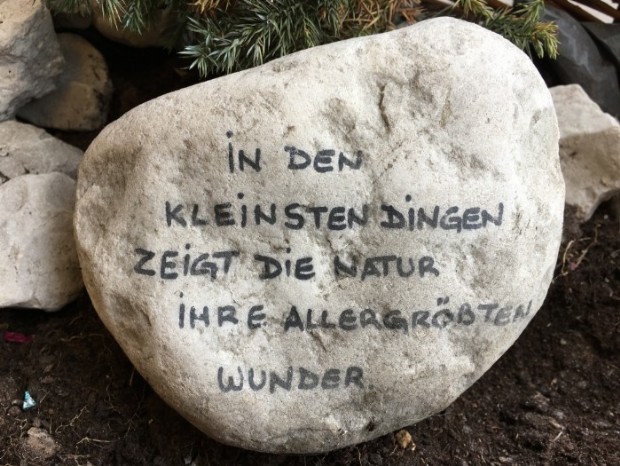 iN DEN
KLEiNSTEN DiNGEN
ZEiGT DiE NATUR
iHRE ALLERGRÖßTEN
WUNDER.